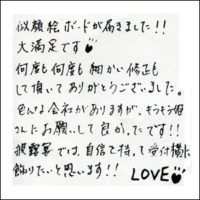 似顔絵ボードが届きました!!
大満足です
何度も何度も細かい修正も
して頂いてありがとうございました。
色んな会社がありますが、キラキラ母
さんにお願いして良かったです!!
披露宴では、自信を持って受付横に
飾りたいと思います!! LOVE